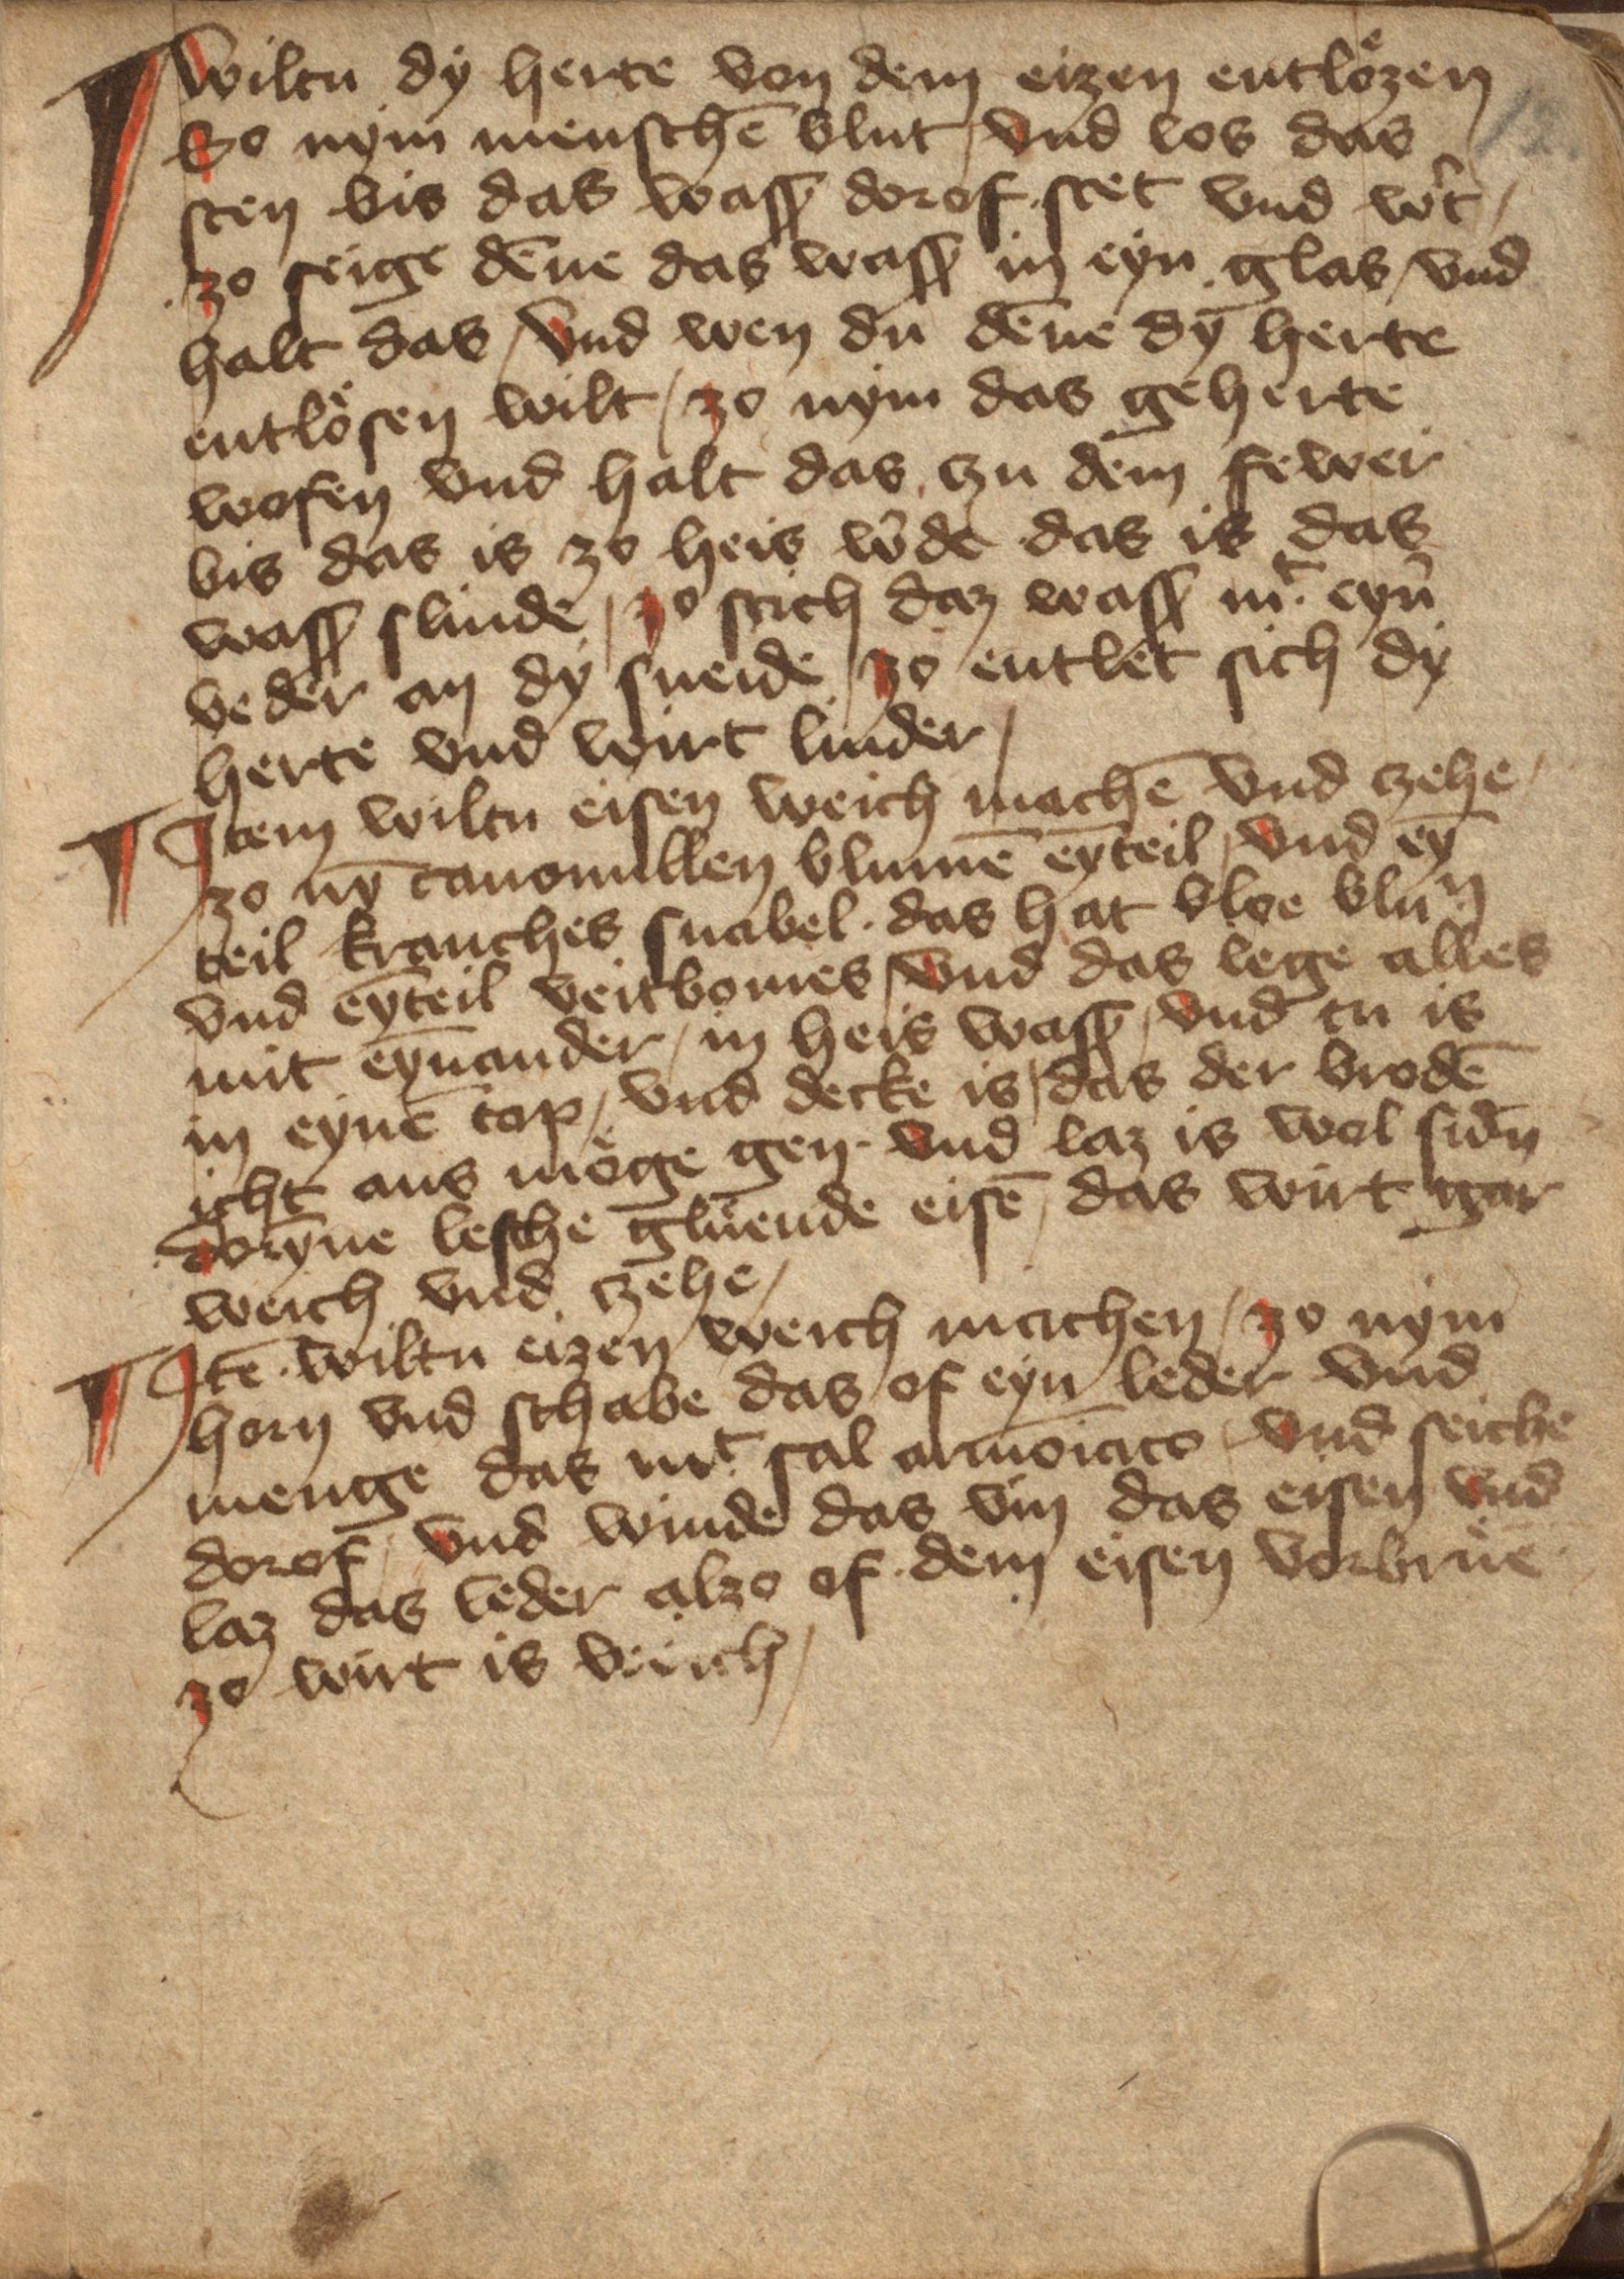 Wiltu dy herte von dem eizen entloͤzen
So nym menschē blut vnd los das
sten bis das wasß dorof stet vnd wͬt
zo seige dēne das wasß in eyn glas vnd
halt das vnd wen du dēne dy herte
entloͤsen wilt zo nym das geherte
wofen vnd halt das zu dem fewer
bis das is zo heis wͬde das is das
wasß slinde zo strich daz wasß mͭ eyn̄
veder an dy sneide zo entlet sich dy
herte vnd wirt linder
Item wiltu eisen weich machē vnd zehe
zo ny̅ camomillen blumē ey̅teil vnd ey̅
teil kranches snabel das hat bloe blum̄
vnd ey̅teil veitbomes vnd das lege alles
mit eynander in heis wasß vnd tu is
in eynē top vnd decke is das der brodē
icht aus moͤge gen vnd laz is wol sidn̄
dory̅ne lesche gluͤende eisē das wirt gar
weich vnd zehe
Itē wiltu eizen weich machen zo nym
horn vnd schabe das of eyn leder vnd
menge das mͭ sal armoiaco vnd seiche
dorof vnd winde das vm das eisen vnd
laz das leder alzo of dem eisen vorbrnē
zo wirt is weich